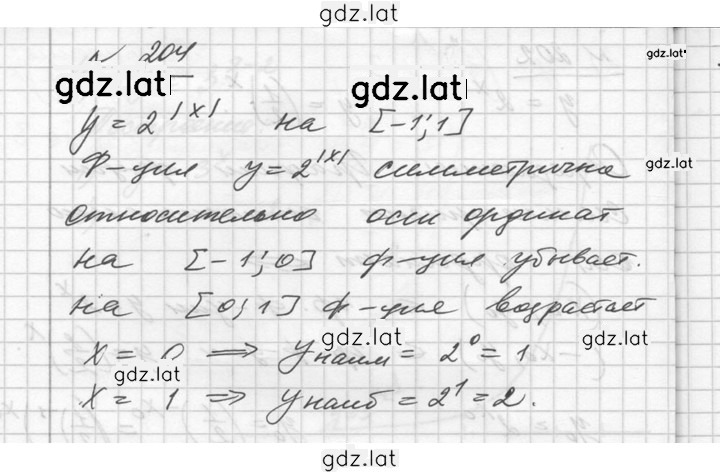 gdz.lat
№ 204
gdz.lat
gdz.lat
gdz.lat
y = 2^|x| на [-1; 1]
Ф-ция y = 2^|x| симметрична
gdz.lat
относительно оси ординат
на [-1; 0] ф-ция убывает.
на [0; 1] ф-ция возрастает
gdz.lat
gdz.lat
x = 0 ⟹ y наим = 2^0 = 1
gdz.lat
x = 1 ⟹ y наиб = 2^1 = 2.
gdz.lat